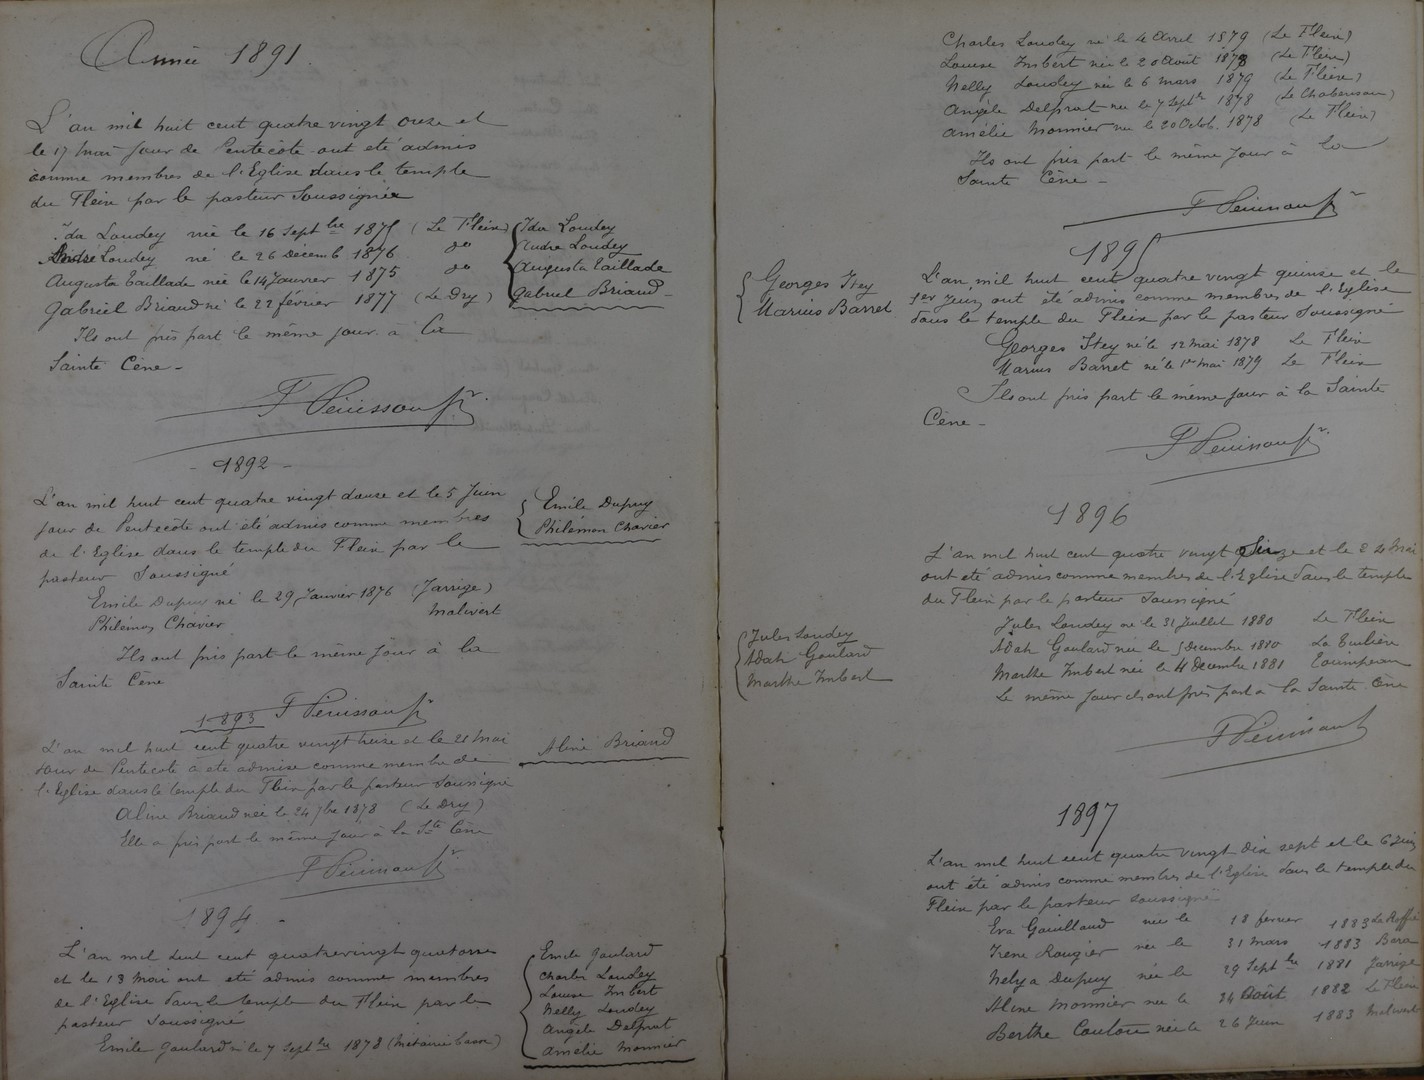 Année 1891
L'an mil huit cent quatre vingt onze et
le 17 Mai jour de Pentecôte ont été admis
comme membres de l'Eglise dans le temple
du Fleix par le pasteur Soussignée
Ida Loudey née le 16 Septbre 1875 (Le Fleix)
André Loudey né le 26 décemb 1876 do
Augusta Taillade née le 14 Janvier 1875 do
Gabriel Briand né le 22 février 1877 (Le Dry)
Ida Loudey
André Loudey
Augusta Taillade
Gabriel Briand
Ils ont pris part le même jour à la
Sainte Cène -
- 1892 -
L'an mil huit cent quatre vingt douse et le 5 Juin
jour de Pentecôte ont été admis comme membres
de l'Eglise dans le temple du Fleix par le
pasteur Soussigné
Emile Dupuy
Philémon Chavier
Emile Dupuy né le 29 Janvier 1876 (Jarrige)
Philémon Chavier Malevert
Ils ont pris part le même jour à la
Sainte Cène
1893
L'an mil huit cent quatre vingt treize et le 21 Mai
jour de Pentecôte a été admise comme membre de
l'Eglise dans le temple du Fleix par le pasteur Soussigné
Aline Briand
Aline Briand née le 24 7bre 1878 (Le Dry)
Elle a pris part le même jour à la Ste Cène
1894 -
L'an mil huit cent quatrevingt quatorse
et le 13 Mai ont été admis comme membres
de l'Eglise dans le temple du Fleix par le
pasteur Soussigné
Emile Goulard né le 7 Septbre 1878 (Métairie basse)
Emile Goulard
Charles Loudey
Louise Imbert
Nelly Loudey
Angèle Delprat
Amélie Monnier
Charles Loudey né le 4 Avril 1879 (Le Fleix)
Louise Imbert née le 20 Août 1878 (Le Fleix)
Nelly Loudey née le 6 mars 1879 (Le Fleix)
Angèle Delprat née le 7 Septbre 1878
Amélie Monnier née le 20 Octob. 1878 (Le Fleix)
Ils ont pris part le même jour à la
Sainte Cène -
1895
Georges Itey
Marius Barret
L'an mil huit cent quatre vingt quinse et le
1er Juin ont été admis comme membres de l'Eglise
dans le temple du Fleix par le pasteur Soussigné
Georges Itey né le 12 mai 1878 Le Fleix
Marius Barret né le 1er mai 1879 Le Fleix
Ils ont pris part le même jour à la Sainte
Cène -
1896
L'an mil huit cent quatre vingt Seize et le 24 Mai
ont été admis comme membres de l'Eglise dans le temple
du Fleix par le pasteur Soussigné
Jules Loudey
Adah Goulard
Marthe Imbert
Jules Loudey né le 31 Juillet 1880 Le Fleix
Adah Goulard née le 5 Décembre 1880 La Tuilière
Marthe Imbert née le 4 Décembre 1881
Le même jour ils ont pris part à la Sainte Cène
1897
L'an mil huit cent quatre vingt dix sept et le 6 Juin
ont été admis comme membres de l'Eglise dans le temple du
Fleix par le pasteur soussigné
Eva Gouillaud née le 18 fevrier 1883
Irène Rougier née le 31 mars 1883
Nelya Dupuy née le 29 Septbre 1881 Jarrige
Aline Monnier née le 24 Août 1882 Le Fleix
Berthe Coutou née le 26 Juin 1883 Malevert